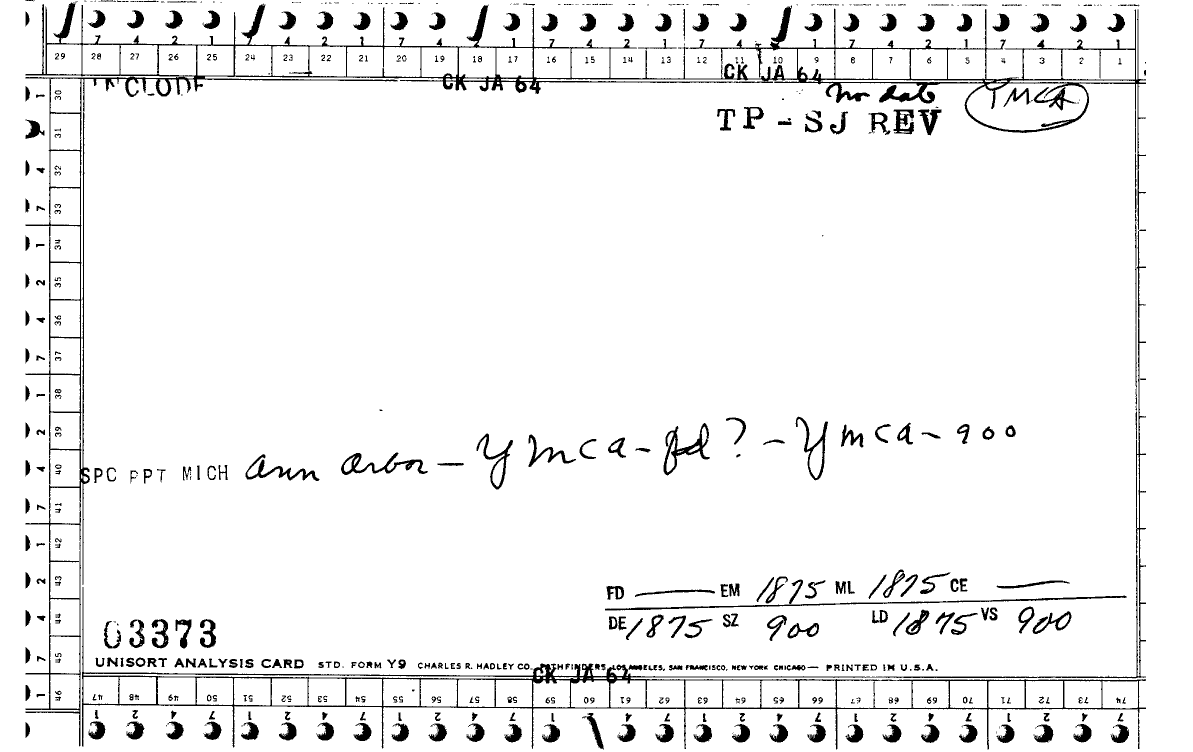 7 4 2 1 7 4 2 1 7 4 2 1 7 4 2 1 7 4 2 1 7 4 2 1
29 28 27 26 25 24 23 22 21 20 19 18 17 16 15 14 13 12 11 10 9 8 7 6 5 4 3 2 1
INCLUDE CK JA 64 CK JA 64
no date YMCA
TP - SJ REV
1 30
2 31
4 32
7 33
1 34
2 35
4 36
7 37
1 38
2 39
4 40
7 41
1 42
2 43
4 44
7 45
1 46
SPC PPT MICH Ann Arbor - YMCA - fd? - YMCA - 900
FD — EM 1875 ML 1875 CE —
DE 1875 SZ 900 LD 1875 VS 900
03373
UNISORT ANALYSIS CARD STD. FORM Y9 CHARLES R. HADLEY CO. PATHFINDERS, LOS ANGELES, SAN FRANCISCO, NEW YORK CHICAGO — PRINTED IN U.S.A.
CK JA 64
47 48 49 50 51 52 53 54 55 56 57 58 59 60 61 62 63 64 65 66 67 68 69 70 71 72 73 74
1 2 4 7 1 2 4 7 1 2 4 7 1 2 4 7 1 2 4 7 1 2 4 7 1 2 4 7